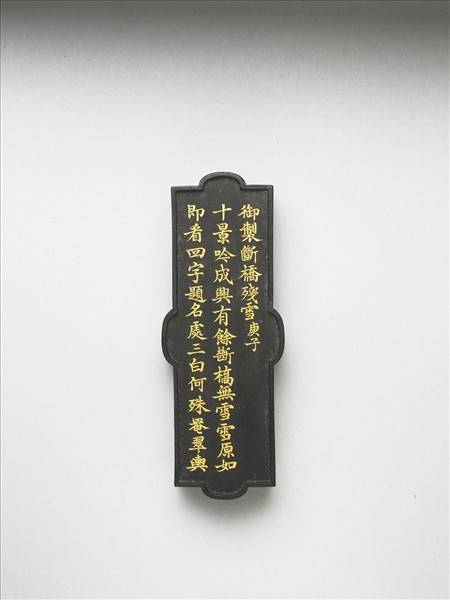 御製斷橋殘雪庚子
十景吟成興有餘斷橋無雪雪原如
即看四字題名處三白何殊罨翠輿